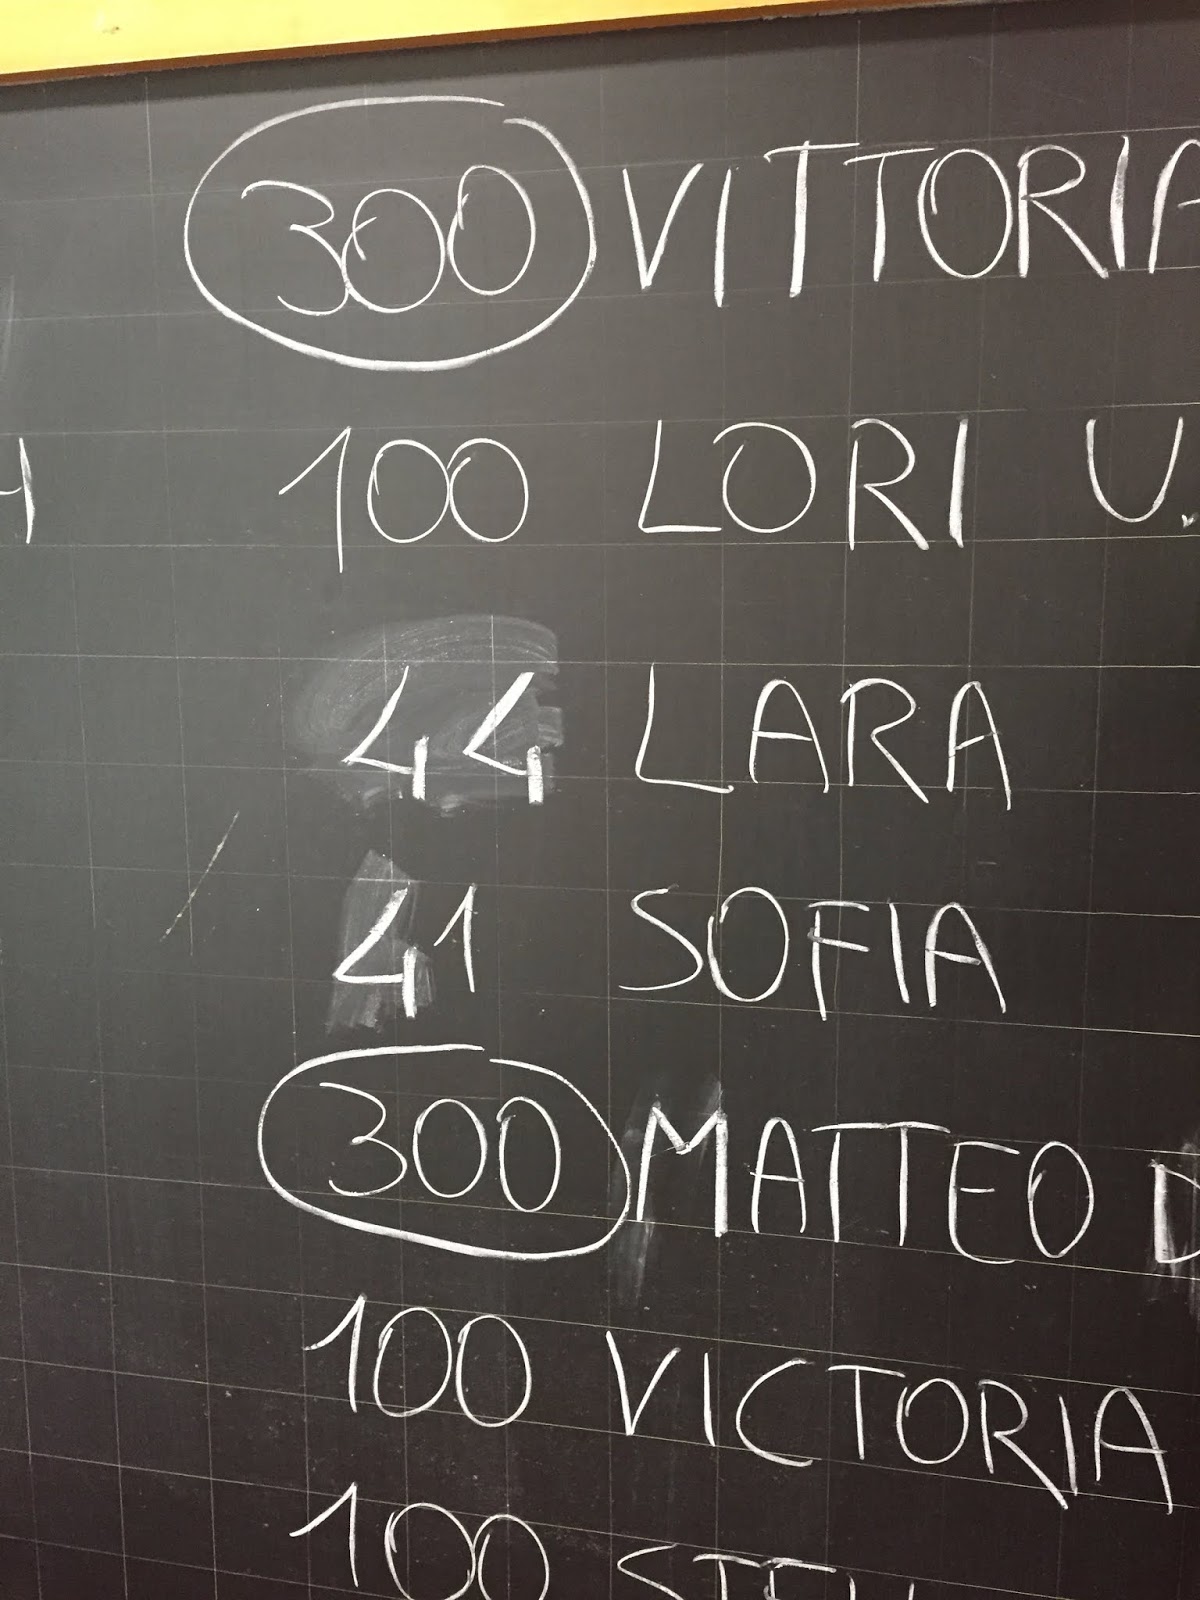 300 VITTORIA
100 LORI U.
44 LARA
41 SOFIA
300 MATTEO D
100 VICTORIA
100